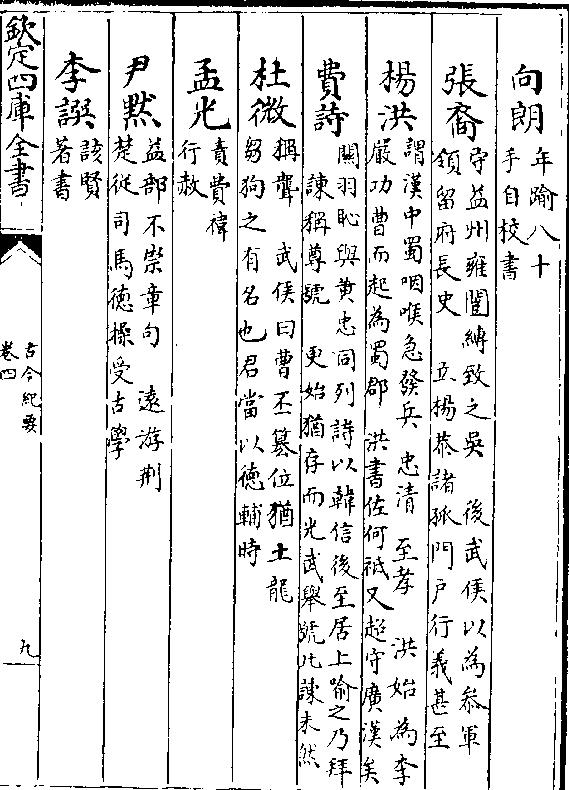 向朗
年踰八十
手自校書
張裔
守益州雍闓縛致之吳　後武侯以為叅軍
領留府長史　立楊恭諸孤門戶行義甚至
楊洪
謂漢中蜀咽喉急發兵　忠清　至孝　洪始為李
嚴功曹而起為蜀郡　洪書佐何祗又超守廣漢矣
費詩
關羽恥與黄忠同列詩以韓信後至居上喻之乃拜
諫稱尊號　更始猶存而光武舉號此諫未然
杜微
稱聾　武侯曰曹丕簒位猶土龍
芻狗之有名也君當以徳輔時
孟光
責費禕
行赦
尹黙
益部不崇章句　逺游荆
楚從司馬徳操受古學
李譔
該賢
著書
欽定四庫全書
古今紀要
卷四
九